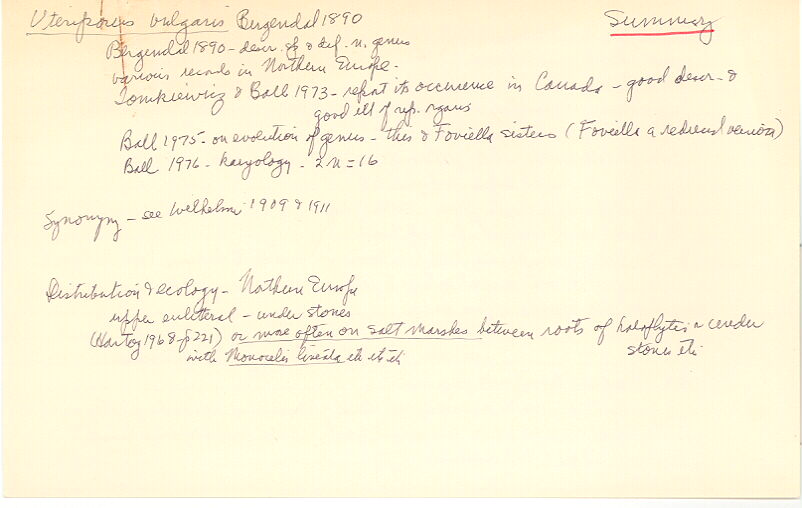 Uteriporus vulgaris Bergendal 1890
Summary
Bergendal 1890 - descr. of & def. n. genus
various records in Northern Europe.
Tomkiewicz & Ball 1973 - report its occurrence in Canada - good descr. &
good ill of rep. organs
Ball 1975 - on evolution of genus - this & Foviella sisters (Foviella a reduced version)
Ball 1976 - karyology - 2n=16
Synonymy - see Wilhelmi 1909 & 1911
Distribution & ecology - Northern Europe
upper eulittoral - under stones
(Hartog 1968 - p221) or more often on salt marshes between roots of halophytes or under
stones etc
with Monocelis lineata etc etc etc